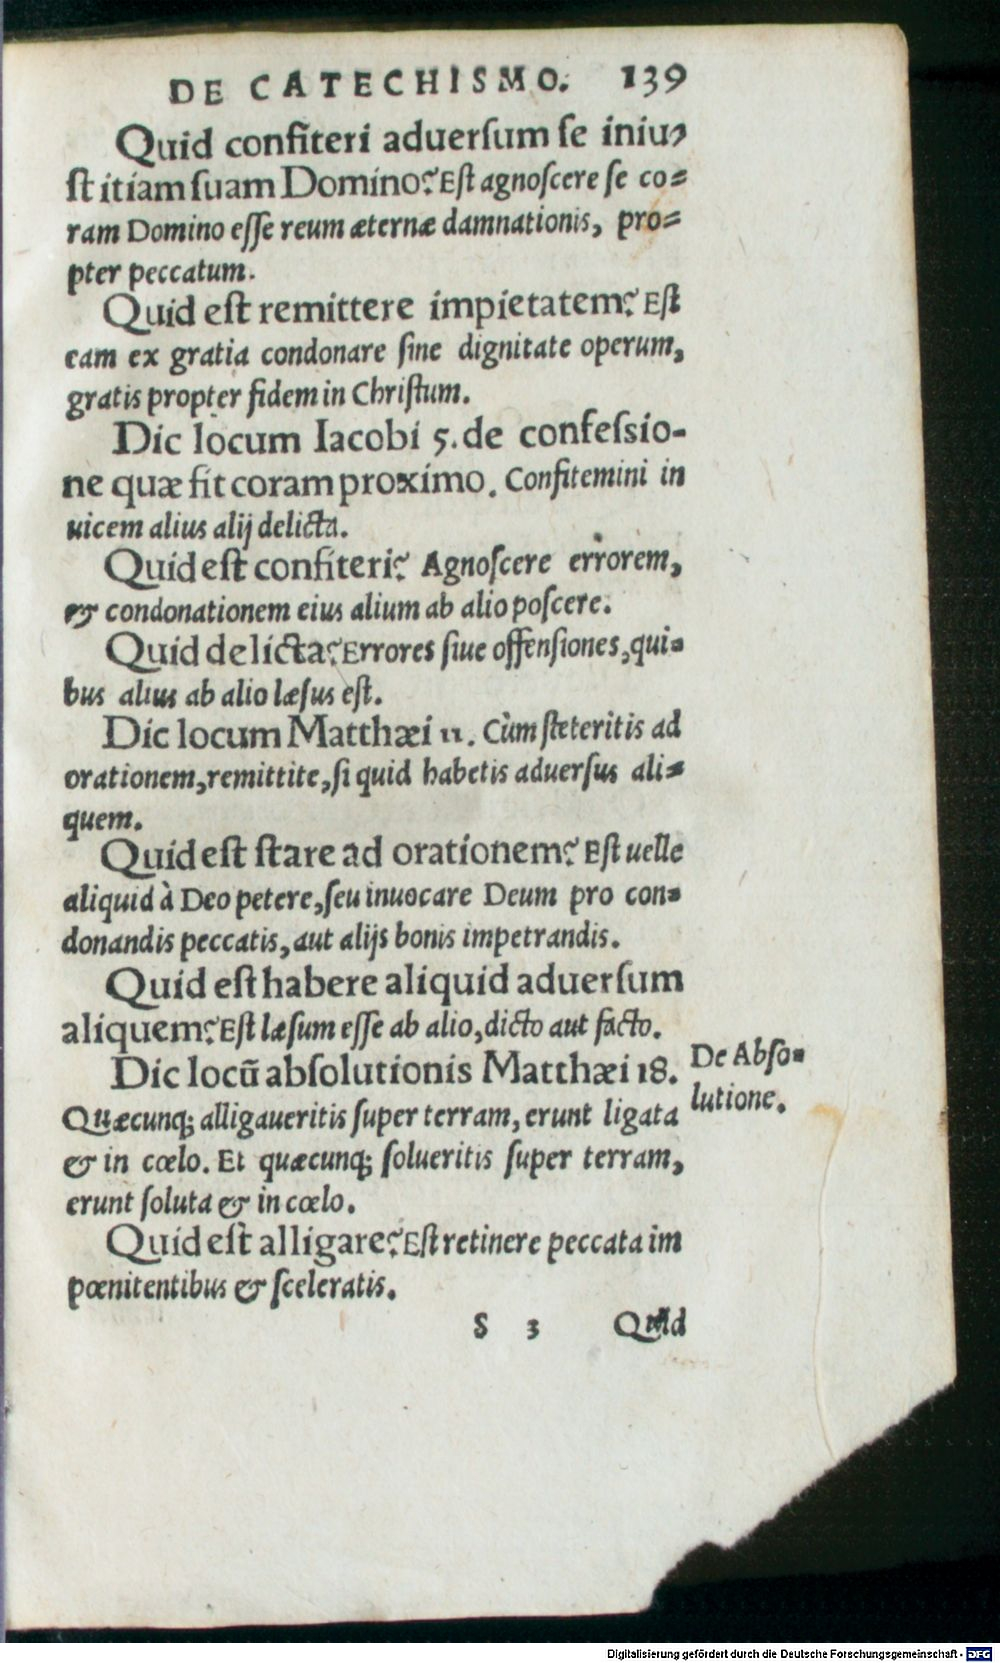 DE CATECHISMO. 139
Quid confiteri aduerſum ſe iniu-
ſtitiam ſuam Domino? Eſt agnoſcere ſe co-
ram Domino eſſe reum æternæ damnationis, pro-
pter peccatum.
Quid eſt remittere impietatem? Eſt
eam ex gratia condonare ſine dignitate operum,
gratis propter fidem in Chriſtum.
Dic locum Iacobi 5. de confeſsio-
ne quæ fit coram proximo. Confitemini in
uicem alius alij delicta.
Quid eſt confiteri? Agnoſcere errorem,
& condonationem eius alium ab alio poſcere.
Quid delicta? Errores ſiue offenſiones, qui-
bus alius ab alio læſus eſt.
Dic locum Matthæi 11. Cùm ſteteritis ad
orationem, remittite, ſi quid habetis aduerſus ali-
quem.
Quid eſt ſtare ad orationem? Eſt uelle
aliquid à Deo petere, ſeu inuocare Deum pro con-
donandis peccatis, aut alijs bonis impetrandis.
Quid eſt habere aliquid aduerſum
aliquem? Eſt læſum eſſe ab alio, dicto aut facto.
Dic locũ abſolutionis Matthæi 18.
De Abſo-
lutione.
Quæcunq; alligaueritis ſuper terram, erunt ligata
& in cœlo. Et quæcunq; ſolueritis ſuper terram,
erunt ſoluta & in cœlo.
Quid eſt alligare? Eſt retinere peccata im
pœnitentibus & ſceleratis.
S 3 Quid
Digitalisierung gefördert durch die Deutsche Forschungsgemeinschaft - DFG